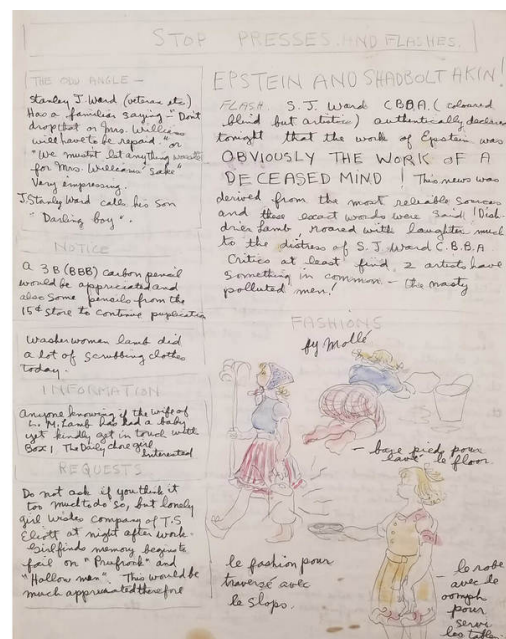 STOP PRESSES AND FLASHES.
THE ODD ANGLE —
Stanley J. Ward (veteran etc)
Has a familiar saying - "Don't
drop that or Mrs. Williams
will have to be repaid" or
"We mustnt let anything waste
for Mrs. Williams' sake"
Very empressing.
J. Stanley Ward calls his son
"Darling boy".
NOTICE
A 3B (BBB) carbon pencil
would be appreciated and
also some pencils from the
15¢ store to continue
Washerwoman lamb did
a lot of scrubbing clothes
today.
INFORMATION
Anyone knowing if the wife of
L. M. Lamb has had a baby
yet kindly get in touch with
Box 1 The Daily chore girl
Interested
REQUESTS
Do not ask if you think it
too much to do so, but lonely
girl wishes company of T.S
Eliott at night after work.
Girl finds memory begins to
fail on "Prufrock" and
"Hallow men". This would be
much appreciated therefore
EPSTEIN AND SHADBOLT AKIN!
FLASH. S. J. Ward CBBA. (coloured
blind but artistic) authentically declares
tonight that the work of Epstein was
OBVIOUSLY THE WORK OF A
DECEASED MIND! This news was
derived from the most reliable sources
and these exact words were said! Dish
drier Lamb, roared with laughter much
to the distress of S. J Ward C.B.B.A.
Critics at least find 2 artists have
something in common — the nasty
polluted men!
FASHIONS
by Mollé
— bare pieds pour
lavé le floor.
le fashion pour
traversé avec
le slops.
— le robe
avec le
oomph
pour
servi
les tables.